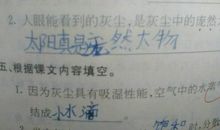 2.人眼能看到的灰尘,是灰尘中的庞然
太阳真是庞然大物
五、根据课文内容填空。
1.因为灰尘具有吸湿性能,空气中的水
结成小水滴